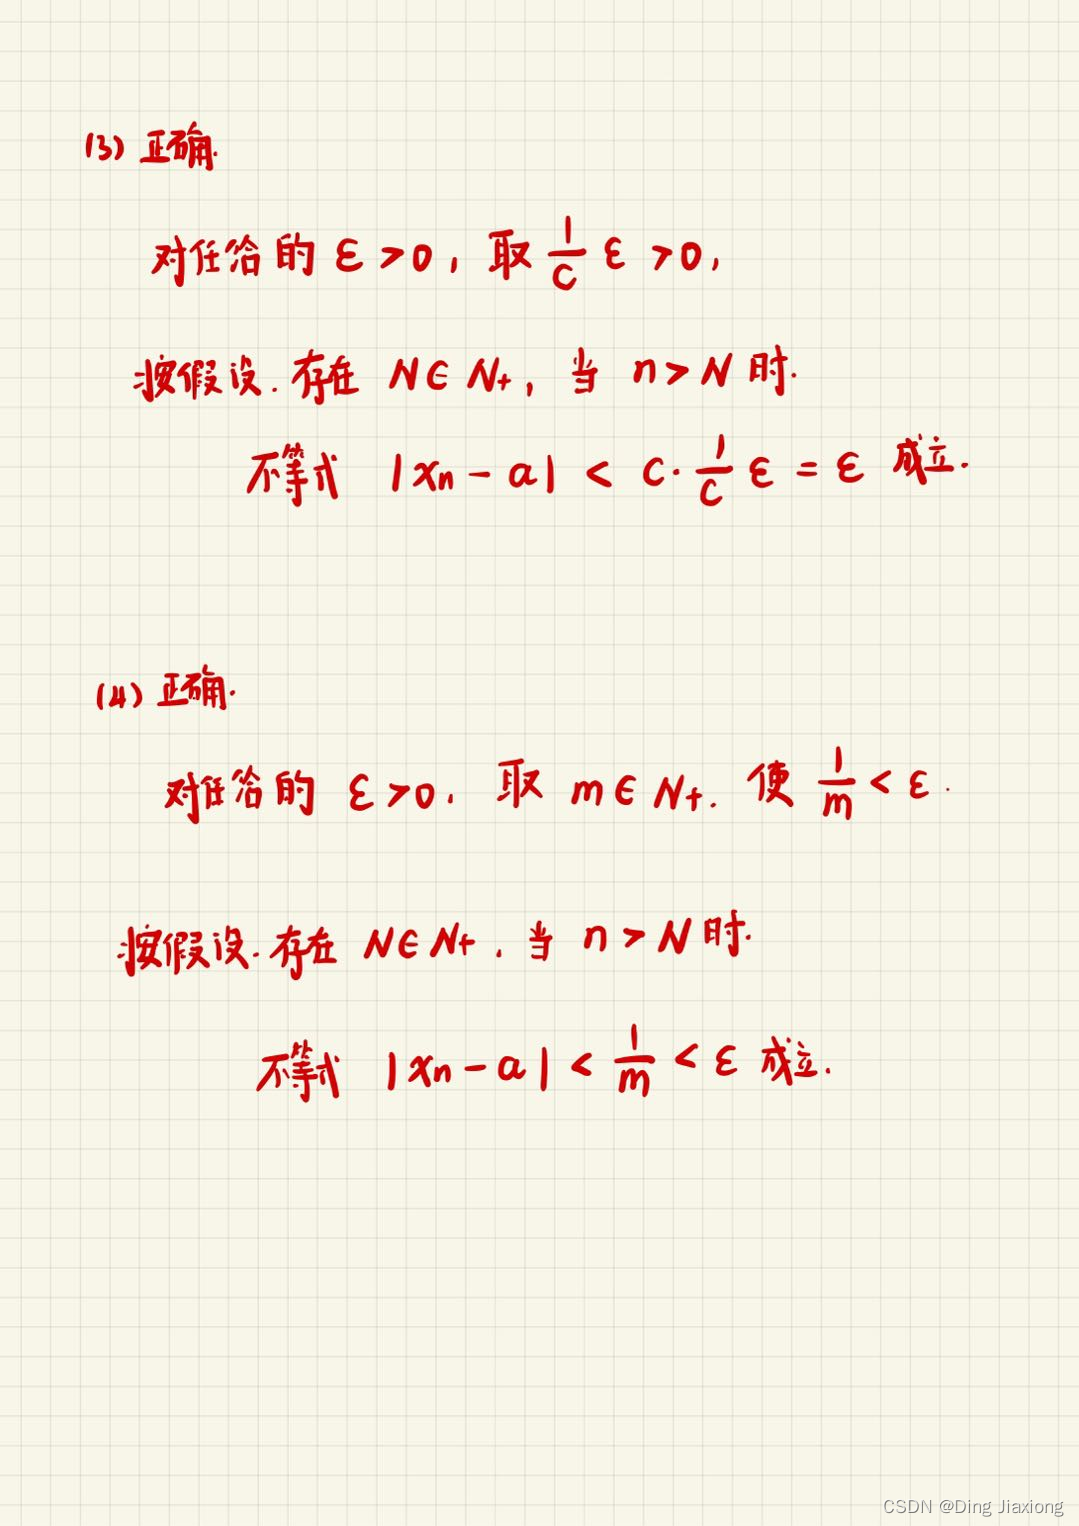 (3) 正确.
对任给的 ε > 0, 取 1/c ε > 0,
按假设. 存在 N ∈ N+, 当 n > N 时.
不等式 |xn - a| < c · 1/c ε = ε 成立.
(4) 正确.
对任给的 ε > 0. 取 m ∈ N+. 使 1/m < ε.
按假设. 存在 N ∈ N+. 当 n > N 时.
不等式 |xn - a| < 1/m < ε 成立.
CSDN @Ding Jiaxiong